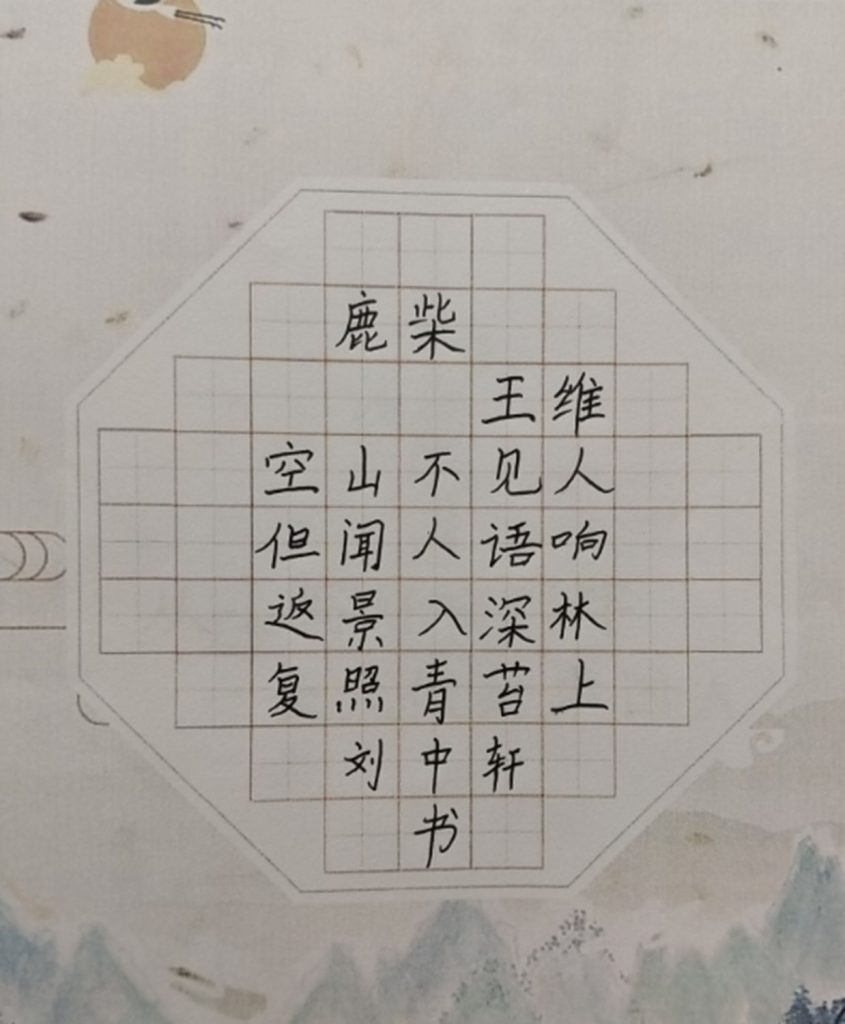 鹿柴
王维
空山不见人
但闻人语响
返景入深林
复照青苔上
刘中轩
书